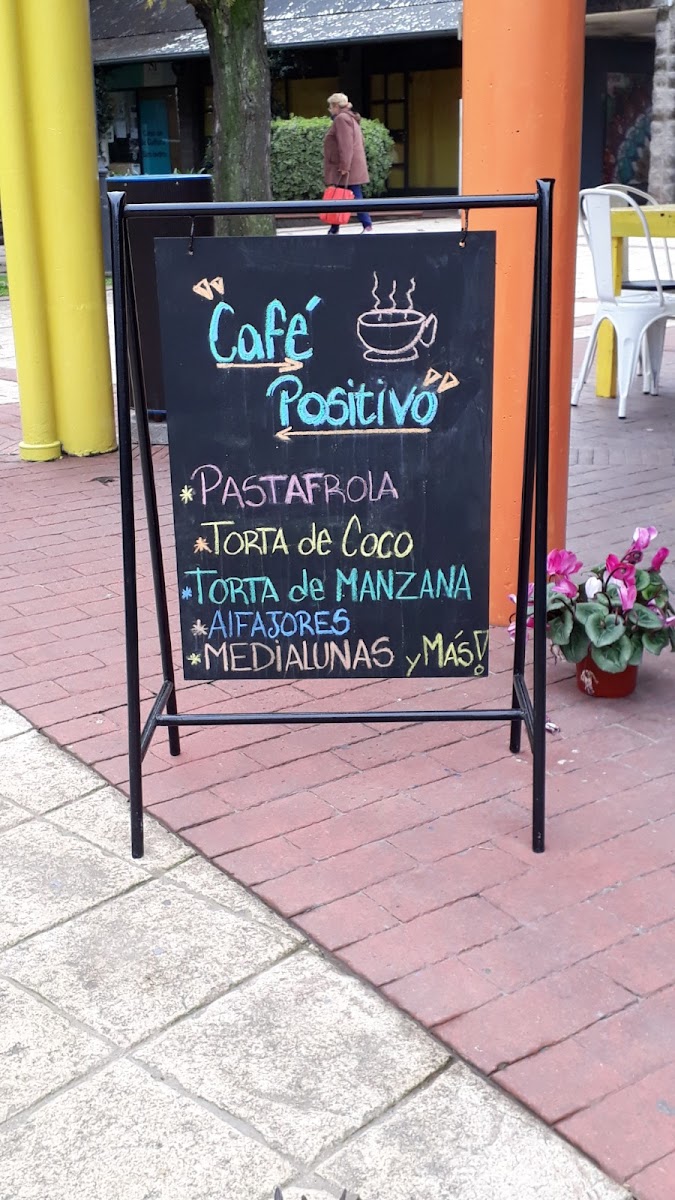 "Café
Positivo"
*PASTAFROLA
*TORTA de Coco
*TORTA de MANZANA
*AlFAJORES
*MEDIALUNAS y MÁS!